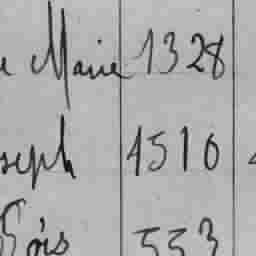 e Marie 1328
seph 1510
Fçois 553